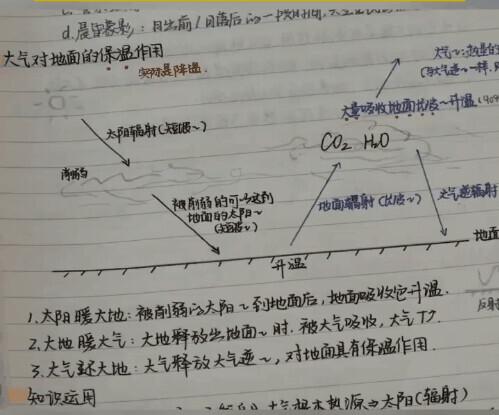 d.晨昏蒙影:日出前/日落后的一段时间,
大气对地面的保温作用
实际是降温.
大气~
太阳辐射(短波~)
大量吸收地面长波~升温
削弱
CO2 H2O
被削弱的可~达到
地面的太阳~
(短波~)
地面辐射(长波~)
大气逆辐射
地面
升温
1.太阳暖大地:被削弱的太阳~到地面后,地面吸收它升温.
反射
2.大地暖大气:大地释放出地面~时.被大气吸收,大气T↑.
3.大气还大地:大气释放大气逆~,对地面具有保温作用.
知识运用
太阳(辐射)